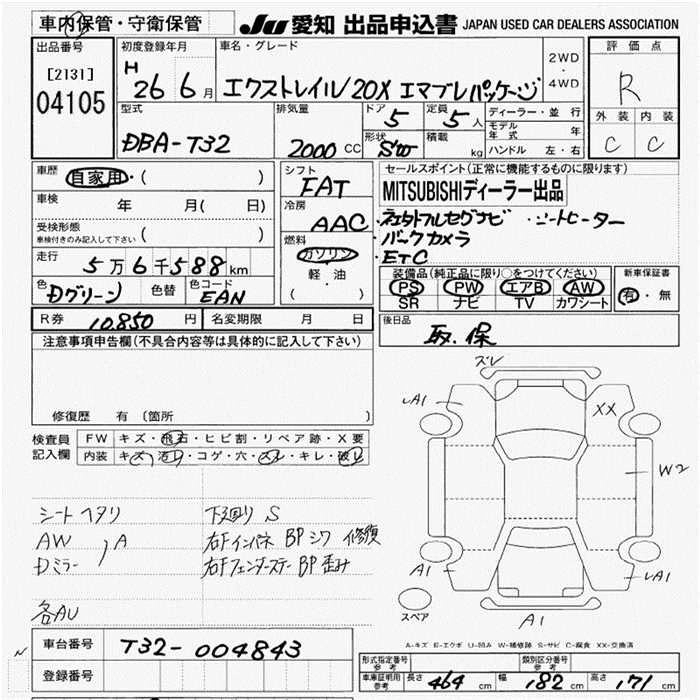 車内保管・守衛保管
JU 愛知 出品申込書 JAPAN USED CAR DEALERS ASSOCIATION
出品番号
[2131]
04105
初度登録年月
H 26 6月
車名・グレード
エクストレイル 20X エマブレパッケージ
2WD
・
4WD
評価点
R
外装 内装
C C
型式
DBA-T32
排気量
2000 CC
ドア
5
定員
5人
形状
積載
kg
ディーラー・並行
モデル年式 年
ハンドル 左・右
車歴
自家用・( )
車検
年 月( 日)
受検形態
車検付きのみ記入して下さい ( )
走行
5万6千588km
色
Dグリーン
色替
色コード
EAN
シフト
FAT
冷房
AAC
燃料
ガソリン
軽・油
( )
セールスポイント(正常に機能するものに限ります)
MITSUBISHIディーラー出品
・シートヒーター
・バックカメラ
・ETC
装備品(純正品に限り○をつけてください)
PS PW エアB AW
SR ナビ TV カワシート
新車保証書
有・無
R券 10,850円
名変期限 月 日
後日品
取.保
注意事項申告欄(不具合内容等は具体的に記入して下さい)
修復歴 有〔箇所
検査員
記入欄
FW キズ・飛石・ヒビ割・リペア跡・X要
内装 キズ・汚れ・コゲ・穴・スレ・キレ・破レ
シートヘタリ
AW
Dミラー
A
各AU
下廻り S
右Fインパネ BPシワ 修復
右Fフェンダーステー BP歪み
ズレ
A1
XX
W2
A1
A1
A1
スペア
A-キズ E-エクボ U-凹み W-補修跡 S-サビ C-腐食 XX-交換済
車台番号
T32-004843
登録番号
形式指定番号
参考
類別区分番号
参考
車庫証明用
参考
長さ 464 cm
幅 182 cm
高さ 171 cm